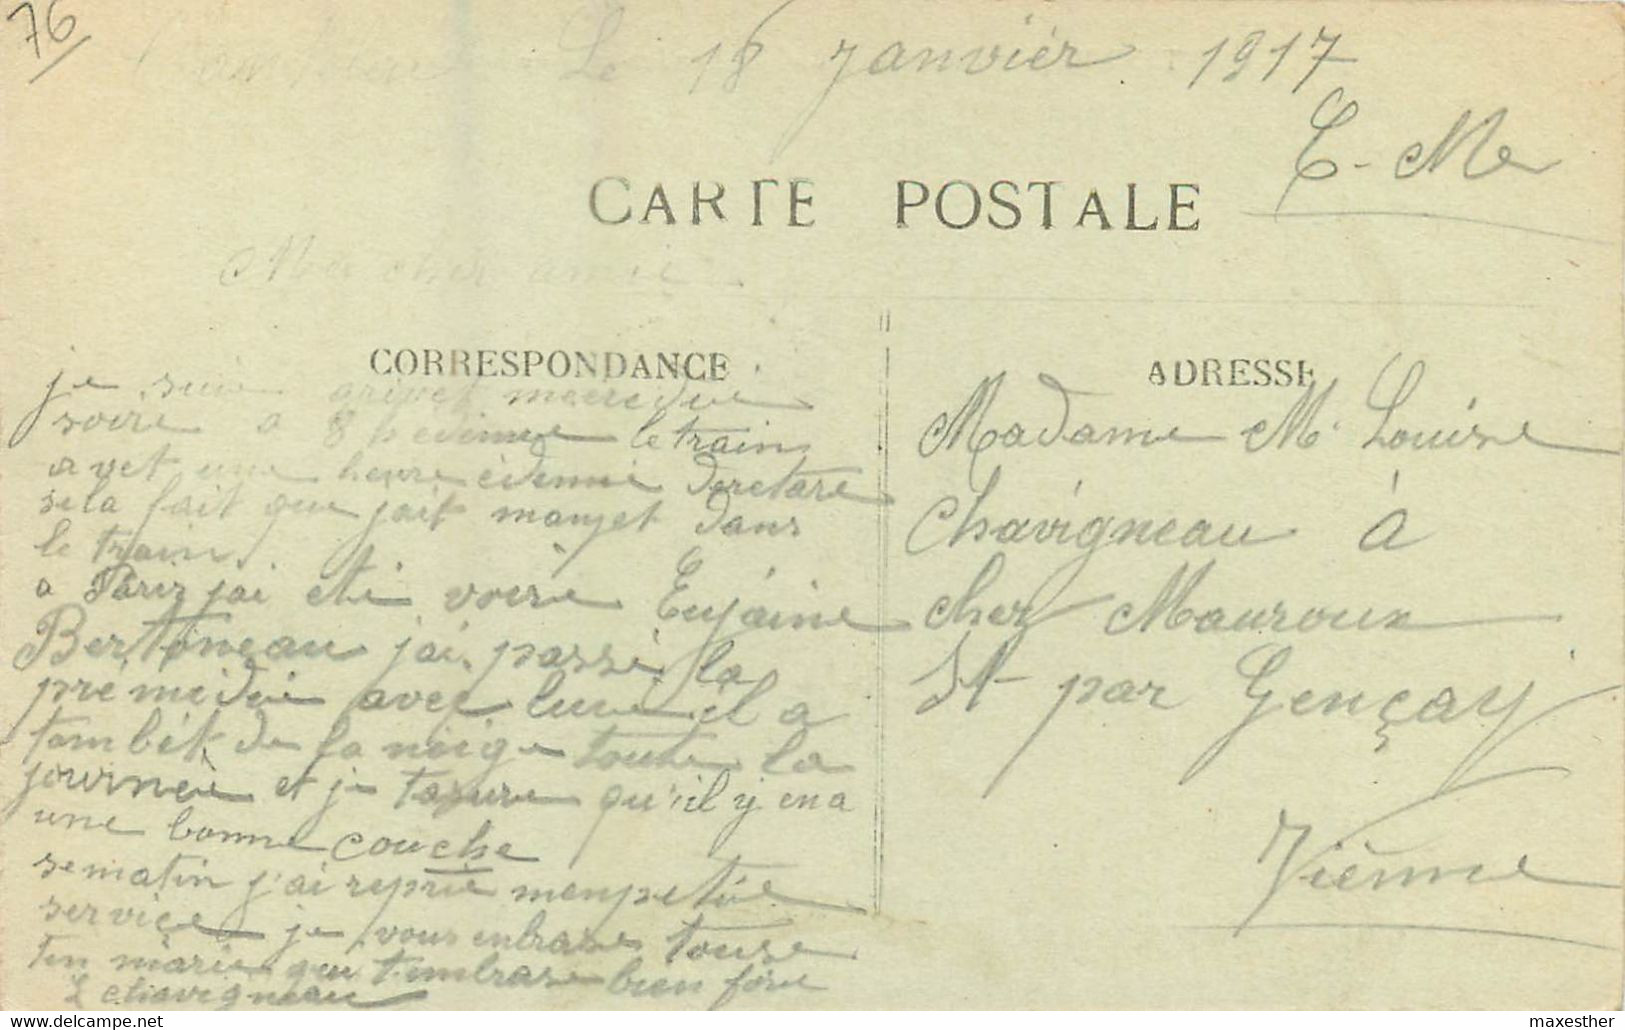 76
Le 18 Janviér 1917
C-Me
CARTE POSTALE
Ma cher amie
CORRESPONDANCE
je suie arivet mecredie
soire a 8 h edemie le train
avet une heure édemie deretare
sela fait que jait manjet dans
le train.
a Pariz jai eté voire Eujaine
Bertoneau jai passé la
premedie avec luie il a
tombét de la neige toute la
journeé et je tasure qu'il y en a
une bonne couche
sematin j'ai reprie monpetie
serviçe je vous enbrase touse
ton marie qui t'embrase bien fore
L chavigneau
ADRESSE
Madame M. Louise
Chavigneau à
chez Mauroux
St par Gençay
Viénne
delcampe.net
maxesther